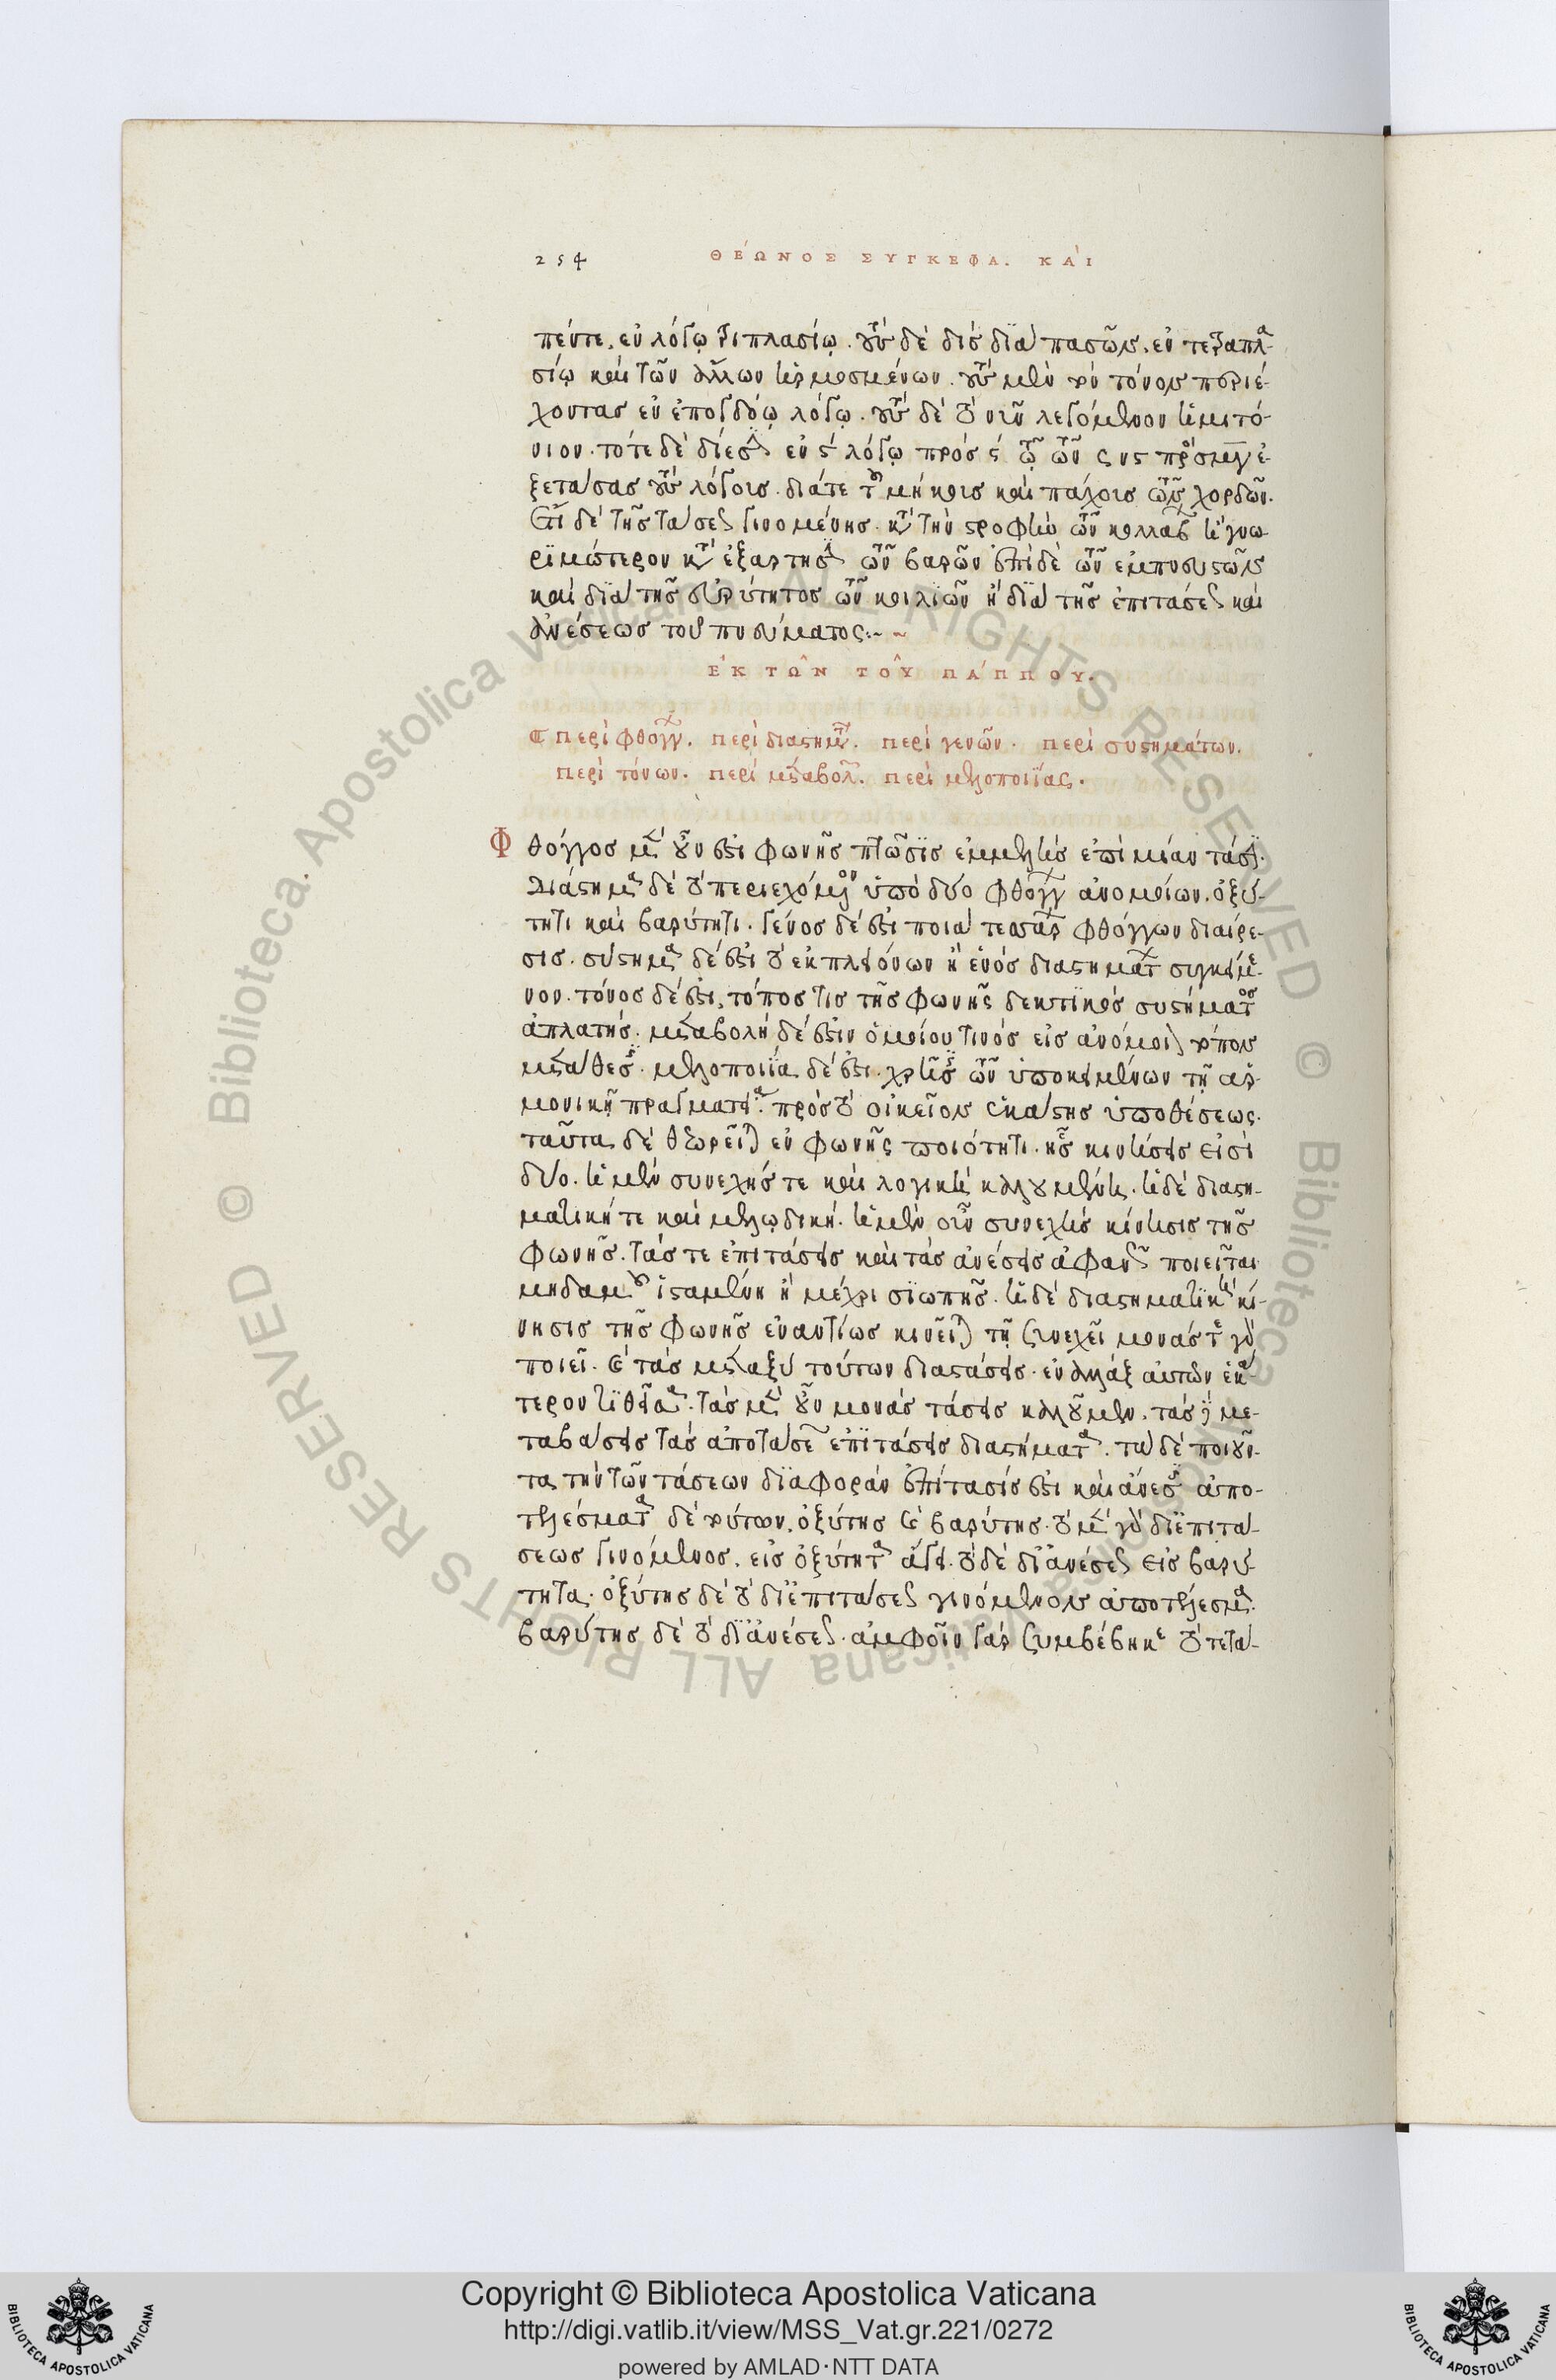 254 ΘΈΩΝΟΣ ΣΥΓΚΕΦΑ. ΚΑῚ
πέντε. ἐν λόγῳ τριπλασίῳ. τοὺς δὲ δὶς διὰ πασῶν. ἐν τετραπλα-
σίῳ καὶ τῶν ἄλλων ἡρμοσμένων. τοὺς μὲν τὸν τόνον περιέ-
χοντας ἐν ἐπογδόῳ λόγῳ. τοὺς δὲ τὸ νῦν λεγόμενον ἡμιτό-
νιον. τότε δὲ δίεσιν ἐν λόγῳ
ξετάσας τοὺς λόγους. διά τε τοῦ μήκους καὶ πάχους τῶν χορδῶν.
ἔτι δὲ τῆς τάσεως γινομένης κατὰ τὴν στροφὴν τῶν κολλάβων ἢ γνω-
ριμώτερον κατὰ ἐξάρτησιν τῶν βαρῶν ἐπὶ δὲ τῶν ἐμπνευστῶν
καὶ διὰ τῆς εὐρύτητος τῶν κοιλιῶν ἢ διὰ τῆς ἐπιτάσεως καὶ
ἀνέσεως τοῦ πνεύματος:~ ~
ἘΚ ΤΩ͂Ν ΤΟΥ͂ ΠΆΠΠΟΥ.
Περὶ φθόγγων. περὶ διαστημάτων. περὶ γενῶν. περὶ συστημάτων.
περὶ τόνων. περὶ μεταβολῶν. περὶ μελοποιΐας.
Φθόγγος μὲν οὖν ἐστι φωνῆς πτῶσις ἐμμελὴς ἐπὶ μίαν τάσιν.
Διάστημα δὲ τὸ περιεχόμενον ὑπὸ δύο φθόγγων ἀνομοίων. ὀξύ-
τητι καὶ βαρύτητι. γένος δέ ἐστι ποιὰ τεσσάρων φθόγγων διαίρε-
σις. σύστημα δέ ἐστι τὸ ἐκ πλειόνων ἢ ἑνὸς διαστημάτων συγκείμε-
νον. τόνος δέ ἐστι. τόπος τις τῆς φωνῆς δεκτικὸς συστήματος
ἀπλατής. μεταβολὴ δέ ἐστιν ὁμοίου τινὸς εἰς ἀνόμοιον τόπον
μετάθεσις. μελοποιΐα δέ ἐστι. χρῆσις τῶν ὑποκειμένων τῇ ἁρ-
μονικῇ πραγματείᾳ. πρὸς τὸ οἰκεῖον ἑκάστης ὑποθέσεως.
ταῦτα δὲ θεωρεῖται ἐν φωνῆς ποιότητι. ἧς κινήσεις εἰσὶ
δύο. ἡ μὲν συνεχής τε καὶ λογικὴ καλουμένη. ἡ δὲ διαστη-
ματική τε καὶ μελῳδική. ἡ μὲν οὖν συνεχὴς κίνησις τῆς
φωνῆς. τάς τε ἐπιτάσεις καὶ τὰς ἀνέσεις ἀφανῶς ποιεῖται
μηδαμοῦ ἱσταμένη ἢ μέχρι σιωπῆς. ἡ δὲ διαστηματικὴ κί-
νησις τῆς φωνῆς ἐναντίως κινεῖται τῇ συνεχεῖ μονάς τε γὰρ
ποιεῖ. καὶ τὰς μεταξὺ τούτων διαστάσεις. ἐναλλὰξ αὐτῶν ἑκά-
τερον τιθεῖσα. τὰς μὲν οὖν μονὰς τάσεις καλοῦμεν. τὰς δὲ με-
ταβάσεις τὰς ἀπὸ τάσεων ἐπὶ τάσεις διαστήματα. τὰ δὲ ποιοῦν-
τα τὴν τῶν τάσεων διαφορὰν ἐπίτασίς ἐστι καὶ ἄνεσις ἀπο-
τελέσματα δὲ τούτων. ὀξύτης καὶ βαρύτης. τὸ μὲν γὰρ δι' ἐπιτά-
σεως γινόμενος. εἰς ὀξύτητα ἄγει. τὸ δὲ δι' ἀνέσεως εἰς βαρύ-
τητα. ὀξύτης δὲ τὸ δι' ἐπιτάσεως γινόμενον ἀποτέλεσμα.
βαρύτης δὲ τὸ δι' ἀνέσεως. ἀμφοῖν γὰρ συμβέβηκε τὸ τετά-
Copyright © Biblioteca Apostolica Vaticana
http://digi.vatlib.it/view/MSS_Vat.gr.221/0272
powered by AMLAD·NTT DATA
BIBLIOTECA APOSTOLICA VATICANA
BIBLIOTECA APOSTOLICA VATICANA
© Biblioteca Apostolica Vaticana ALL RIGHTS RESERVED
© Biblioteca Apostolica Vaticana ALL RIGHTS RESERVED